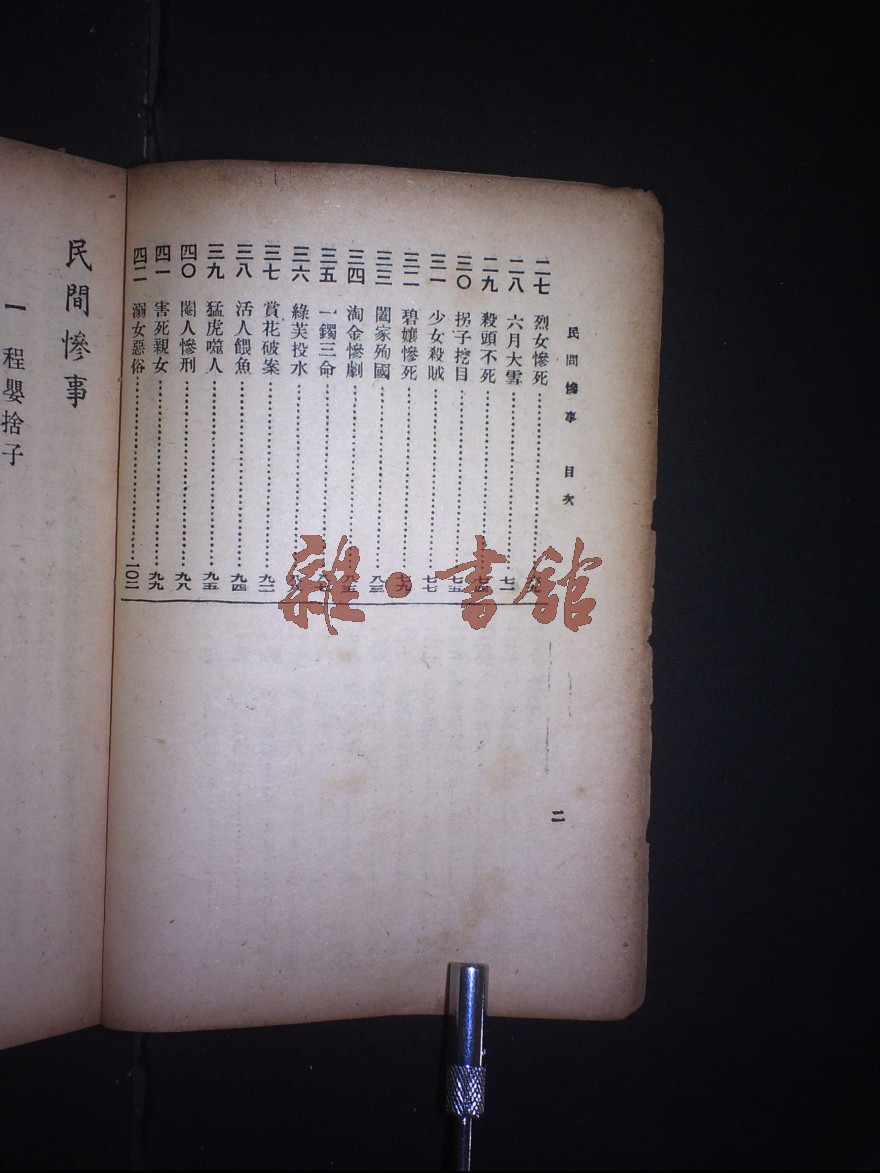 民間慘事　目次
二七　烈女慘死………………
二八　六月大雪………………七一
二九　殺頭不死………………七四
三〇　拐子挖目………………七五
三一　少女殺賊………………七七
三二　碧孃慘死………………七九
三三　闔家殉國………………八三
三四　淘金慘劇………………八五
三五　一鐲三命………………
三六　綠芙投水………………
三七　賞花破案………………
三八　活人餵魚………………九四
三九　猛虎噬人………………九五
四〇　閹人慘刑………………九八
四一　害死親女………………九九
四二　溺女惡俗………………一〇二
二
民間慘事
一　程嬰捨子
雜·書館